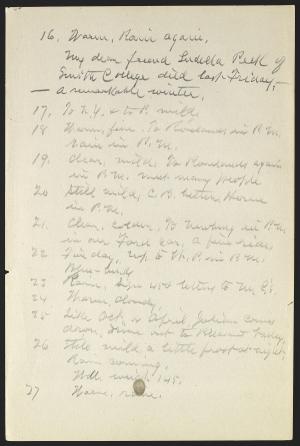 16, Warm, Rain again.
My dear friend Ludella Peck of
Smith College died last Friday, —
— a remarkable winter.
17, To N.Y. & to P. mild.
18 Warm, fine. To Roselands in P.M.
rain in P.M.
19, clear, mild. To Roselands again
in P.M. meet many people
20 Still mild, C.B. better, Home
in P.M.
21, Clear, colder, To Newburg in P.M.
in our Ford car, a fine ride
22 Fine day, up to W. P. in P.M.
Blue-birds
23 Rain, letters to
24 Warm, cloudy,
25 Like Oct. or April, Julian comes
down, drive up to Pleasant Valley,
26 Still mild, a little frost at night,
Rain coming.
Wt. weigh 145.
27 Warm,